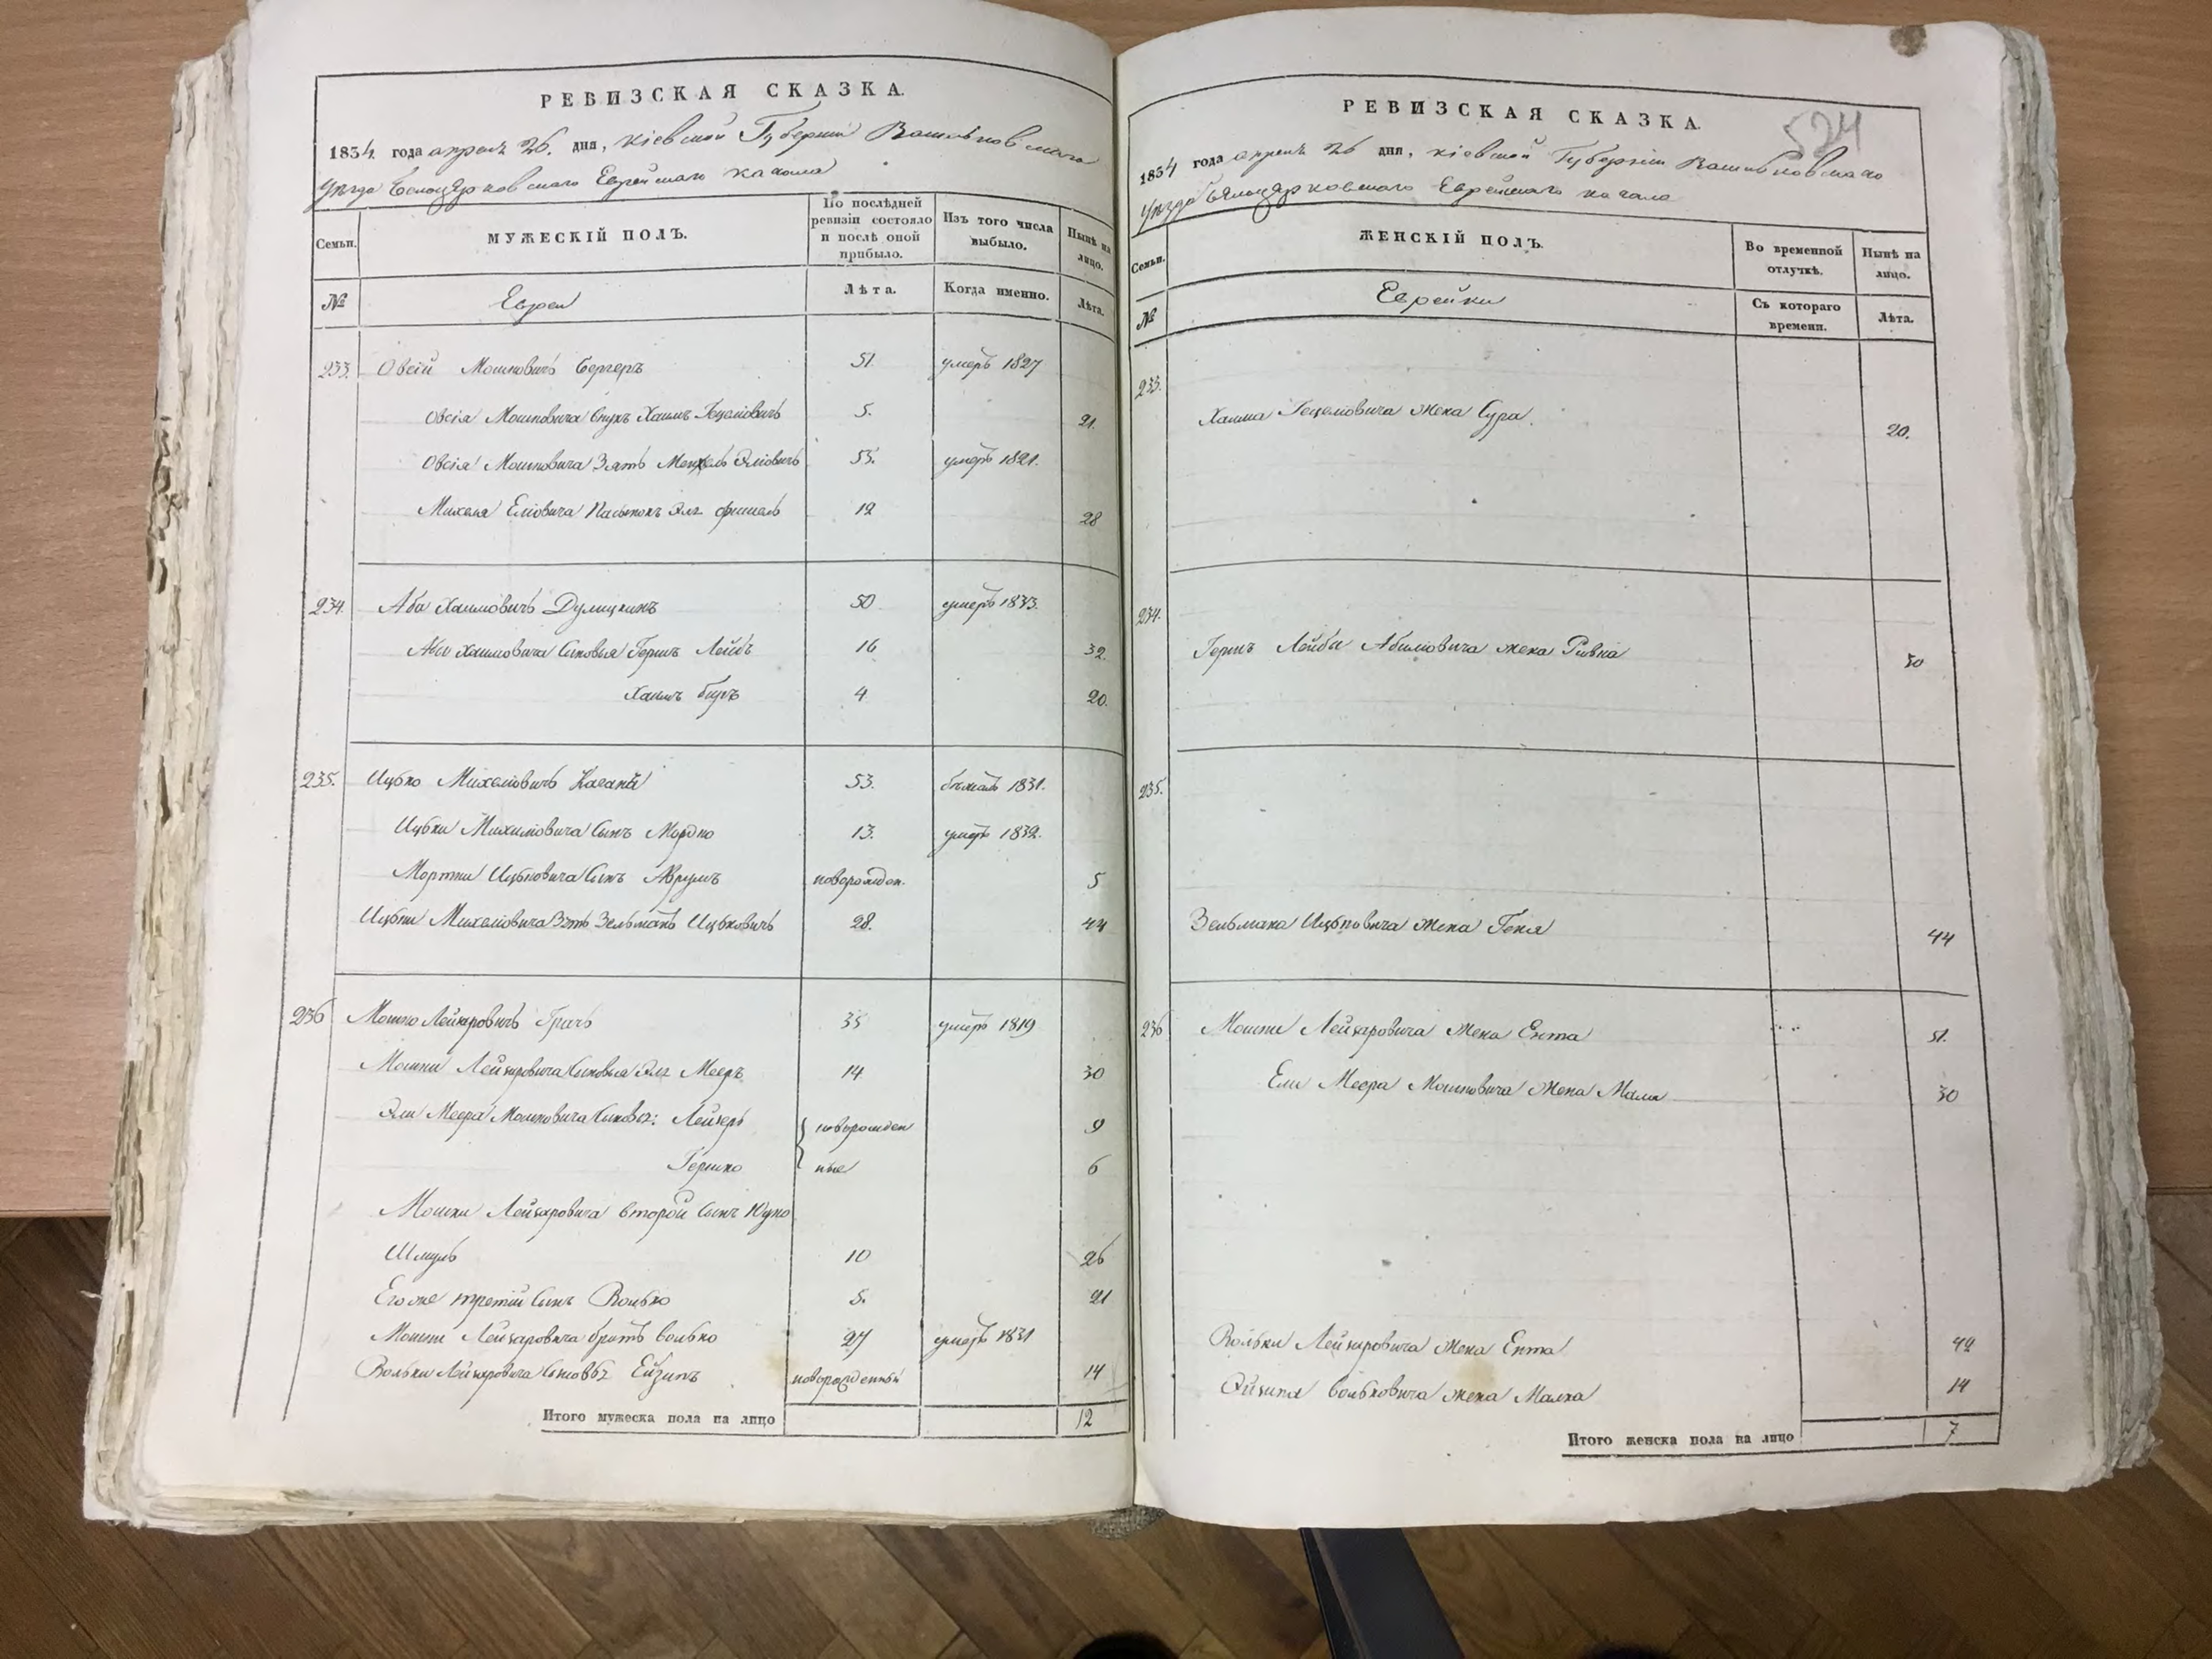 РЕВИЗСКАЯ СКАЗКА.
1834 года апреля 26. дня, кіевской Губерніи Васильковскаго
уезда Белоцерковскаго Еврейскаго кагала
Семьи. МУЖЕСКІЙ ПОЛЪ. По послѣдней ревизіи состояло и послѣ оной прибыло. Изъ того числа выбыло. Нынѣ на лицо.
№ Евреи Лѣта. Когда именно. Лѣта.
233. Овсій Мошковичъ Бергеръ 51. умеръ 1827
Овсія Мошковича внукъ Хаимъ Гецеліовичъ 5. 21.
Овсія Мошковича Зять Менхель Эліовичъ 53. умеръ 1821.
Михеля Еліовича Пасынокъ Эль Фишель 12 28
234. Аба Хаимовичъ Дулицкинъ 50 умеръ 1833.
Абы Хаимовича Сыновья Гершъ Лейбъ 16 32.
Хаимъ Беръ 4 20.
235. Ицько Михеліовичъ 53. бежалъ 1831.
Ицьки Михеліовича Сынъ Мордко 13. умеръ 1832.
Мортки Ицьковича Сынъ Аврумъ новорожден. 5
Ицьки Михеліовича Зять Зельманъ Ицьковичъ 28. 44
236 Мошко Лейзаровичъ Грачъ 35 умеръ 1819
Мошки Лейзаровича Сыновья Эль Мееръ 14 30
Эли Меера Мошковича Сыновья: Лейзеръ новорожден 9
Гершко ные 6
Мошки Лейзаровича второй Сынъ Юдко
Шмуль 10 26
Его же третій Сынъ Волько 5. 21
Мошки Лейзаровича братъ Волько 27 умеръ 1831
Вольки Лейзаровича Сыновья Ейзикъ новорожденный 14
Итого мужеска пола на лицо 12
524
РЕВИЗСКАЯ СКАЗКА.
1834 года апреля 26 дня, кіевской Губерніи Васильковскаго
уезда Бѣлоцерковскаго Еврейскаго кагала
Семьи. ЖЕНСКІЙ ПОЛЪ. Во временной отлучкѣ. Нынѣ на лицо.
№ Еврейки Съ котораго времени. Лѣта.
233.
Хаима Гецеліовича жена Сура. 20.
234.
Гершъ Лейбы Абиліовича жена Ривка 30
235.
Зельмана Ицьковича жена Геня 44
236 Мошки Лейзаровича жена Ента 51.
Ели Меера Мошковича жена Маля 30
Вольки Лейзаровича жена Ента 42
Эйзика Вольковича жена Малка 14
Итого женска пола на лицо 7